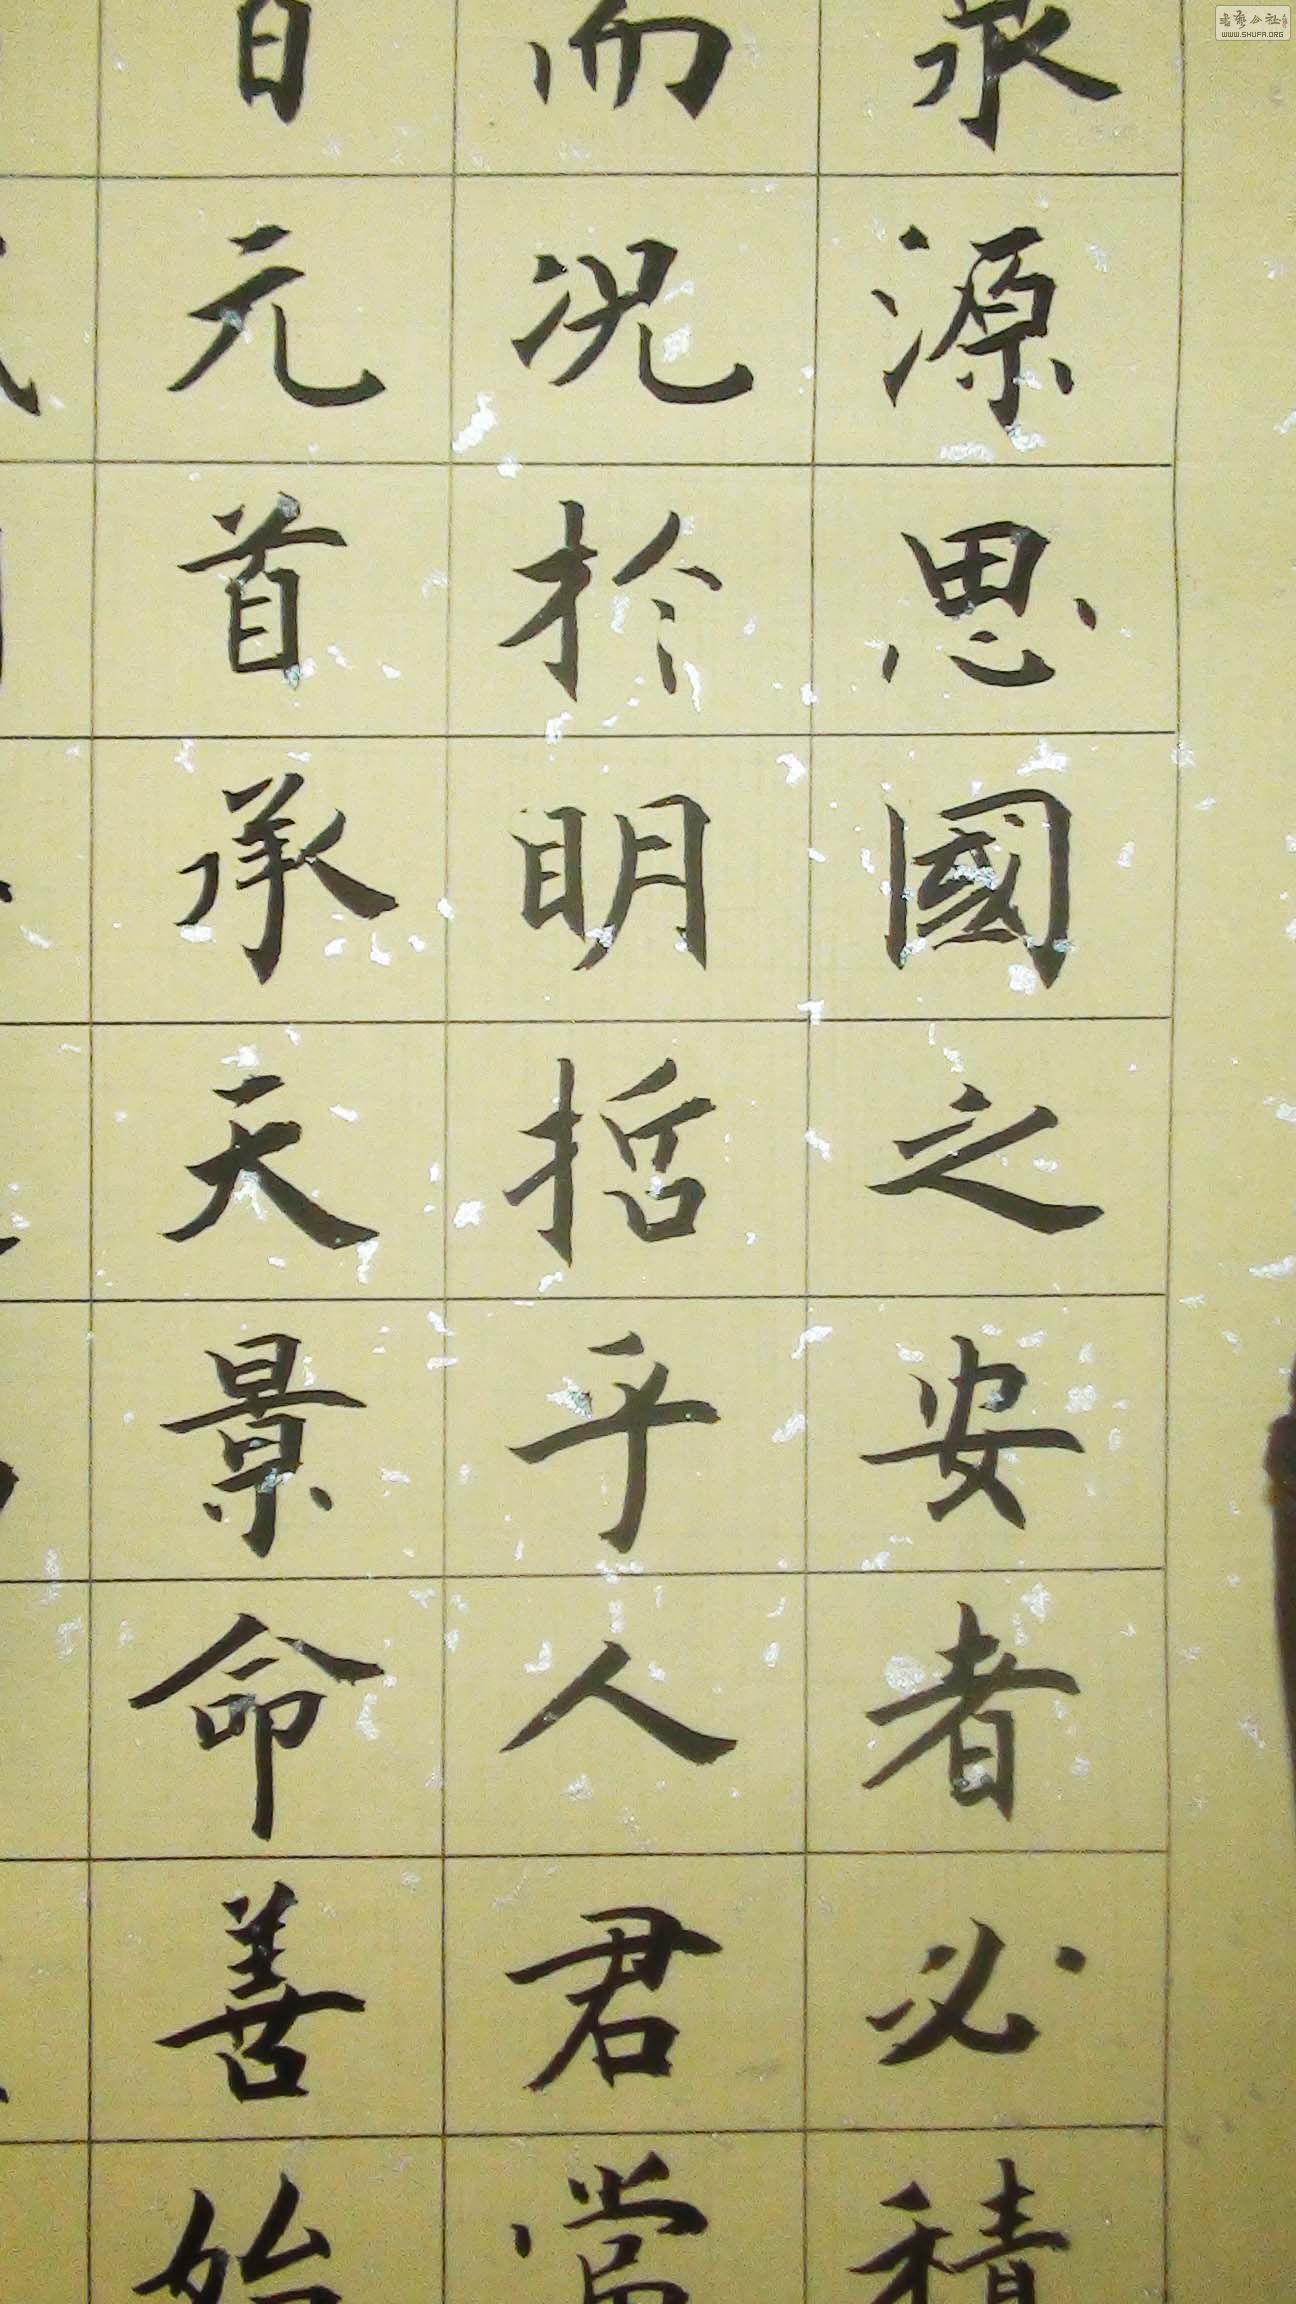 泉源思國之安者必積
而况於明哲乎人君當
元首承天景命善始
书艺公社
WWW.SHUFA.ORG